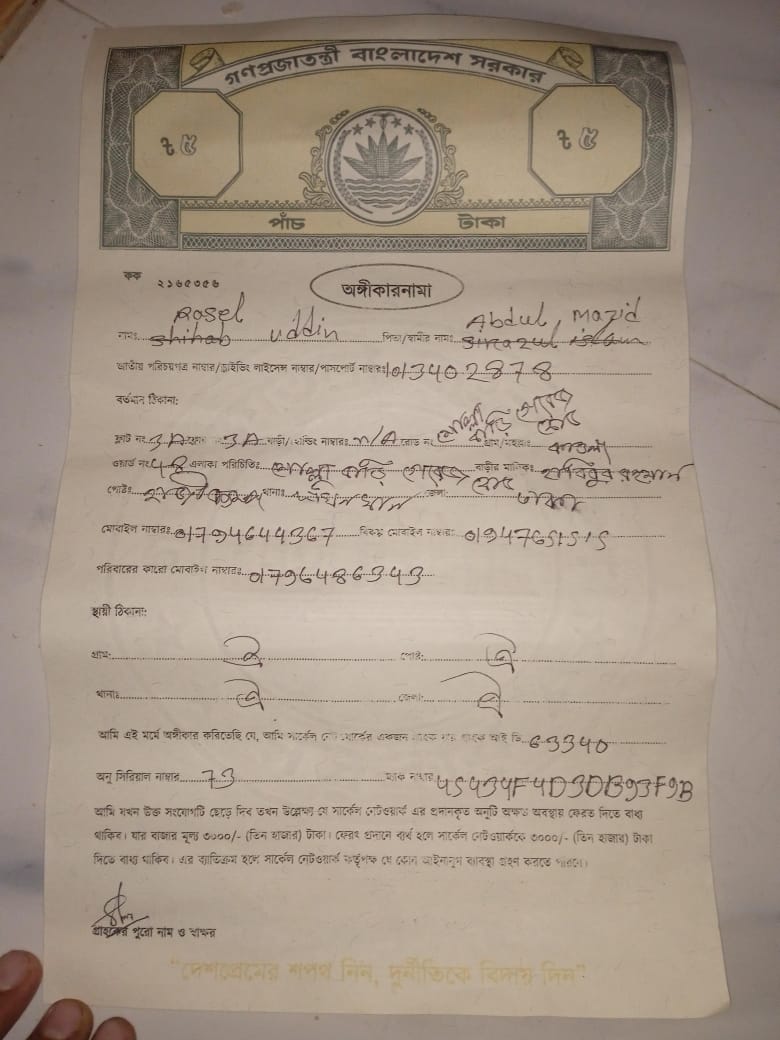 গণপ্রজাতন্ত্রী বাংলাদেশ সরকার
৳ ৫ ৳ ৫
পাঁচ টাকা
কক ২১৬৫৩৫৬
অঙ্গীকারনামা
Rosel Abdul, Mazid
নামঃ Shihab uddin পিতা/স্বামীর নামঃ Sirazul islam
জাতীয় পরিচয়পত্র নাম্বার/ড্রাইভিং লাইসেন্স নাম্বার/পাসপোর্ট নাম্বারঃ
বর্তমান ঠিকানা:
ফ্লাট নং 3A 3A বাড়ী/হোল্ডিং নাম্বারঃ N/A রোড নং মোল্লা বাড়ি গ্রাম/মহল্লাঃ কাওলা
ওয়ার্ড নং 48 এলাকা পরিচিতিঃ মোল্লা বাড়ি রোড বাড়ীর মালিকঃ হাবিবুর রহমান
পোষ্টঃ থানাঃ জেলাঃ ঢাকা
মোবাইল নাম্বারঃ 01794644367 বিকল্প মোবাইল নাম্বারঃ 01947651515
পরিবারের কারো মোবাইল নাম্বারঃ 01796486343
স্থায়ী ঠিকানা:
গ্রাম: ঐ পোষ্ট: ঐ
থানাঃ ঐ জেলা: ঐ
আমি এই মর্মে অঙ্গীকার করিতেছি যে, আমি সার্কেল নেটওয়ার্কের একজন গ্রাহক যার গ্রাহক আই ডি 63340
অনু সিরিয়াল নাম্বার 73 ম্যাক নাম্বার 45434F4D3DB93F9B
আমি যখন উক্ত সংযোগটি ছেড়ে দিব তখন উল্লেখ্য যে সার্কেল নেটওয়ার্ক এর প্রদানকৃত অনুটি অক্ষত অবস্থায় ফেরত দিতে বাধ্য
থাকিব। যার বাজার মূল্য ৩০০০/- (তিন হাজার) টাকা। ফেরৎ প্রদানে ব্যর্থ হলে সার্কেল নেটওয়ার্ককে ৩০০০/- (তিন হাজার) টাকা
দিতে বাধ্য থাকিব। এর ব্যতিক্রম হলে সার্কেল নেটওয়ার্ক কর্তৃপক্ষ যে কোন আইনানুগ ব্যবস্থা গ্রহণ করতে পারবে।
গ্রাহকের পুরো নাম ও স্বাক্ষর
"দেশপ্রেমের শপথ নিন, দুর্নীতিকে বিদায় দিন"